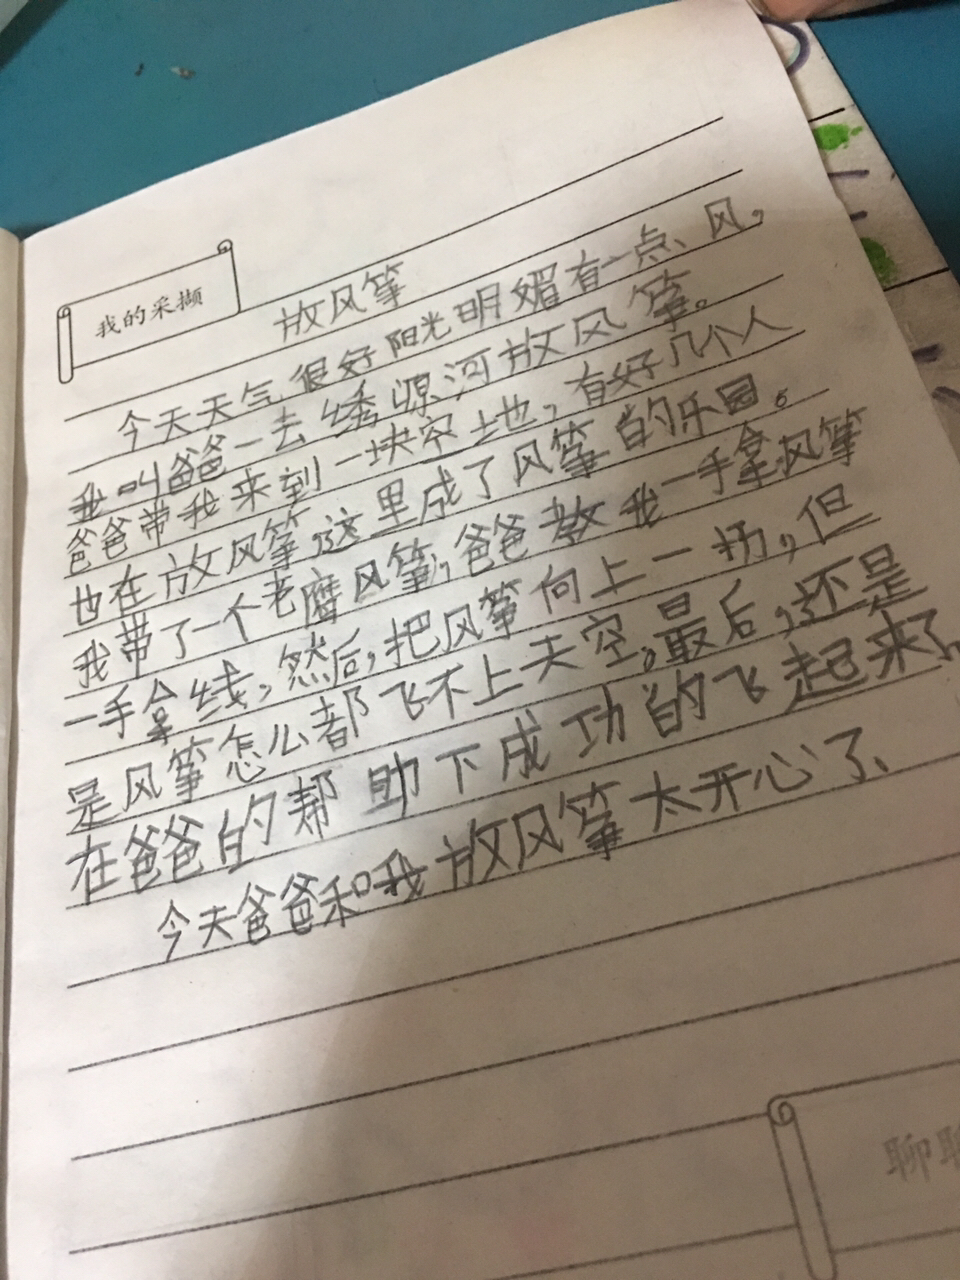 我的采撷
放风筝
今天天气很好阳光明媚有一点、风,
我叫爸爸一去绣源河放风筝。
爸爸带我来到一块空土地,有好几个人
也在放风筝这里成了风筝的乐园。
我带了一个老鹰风筝,爸爸教我一手拿风筝
一手拿线,然后,把风筝向上一扔,但
是风筝怎么都飞不上天空。最后,还是
在爸爸的帮助下成功的飞起来了。
今天爸爸和我放风筝太开心了、
聊